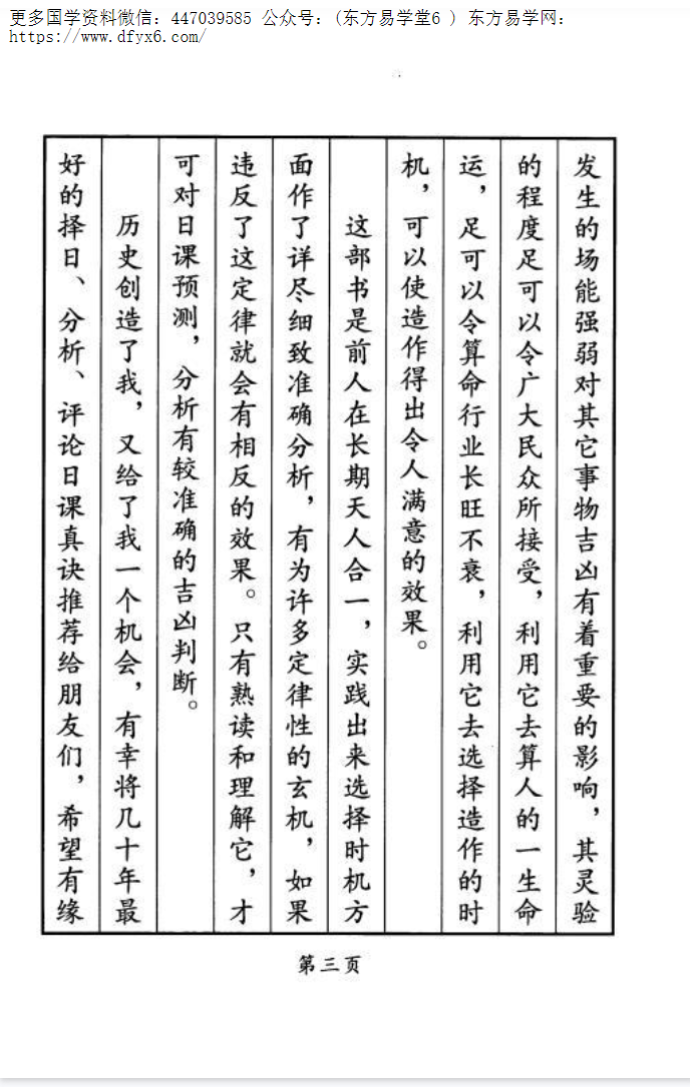 更多国学资料微信：447039585 公众号：（东方易学堂6 ） 东方易学网：
https://www.dfyx6.com/
发生的场能强弱对其它事物吉凶有着重要的影响，其灵验
的程度足可以令广大民众所接受，利用它去算人的一生命
运，足可以令算命行业长旺不衰，利用它去选择造作的时
机，可以使造作得出令人满意的效果。
这部书是前人在长期天人合一，实践出来选择时机方
面作了详尽细致准确分析，有为许多定律性的玄机，如果
违反了这定律就会有相反的效果。只有熟读和理解它，才
可对日课预测，分析有较准确的吉凶判断。
历史创造了我，又给了我一个机会，有幸将几十年最
好的择日、分析、评论日课真诀推荐给朋友们，希望有缘
第三页